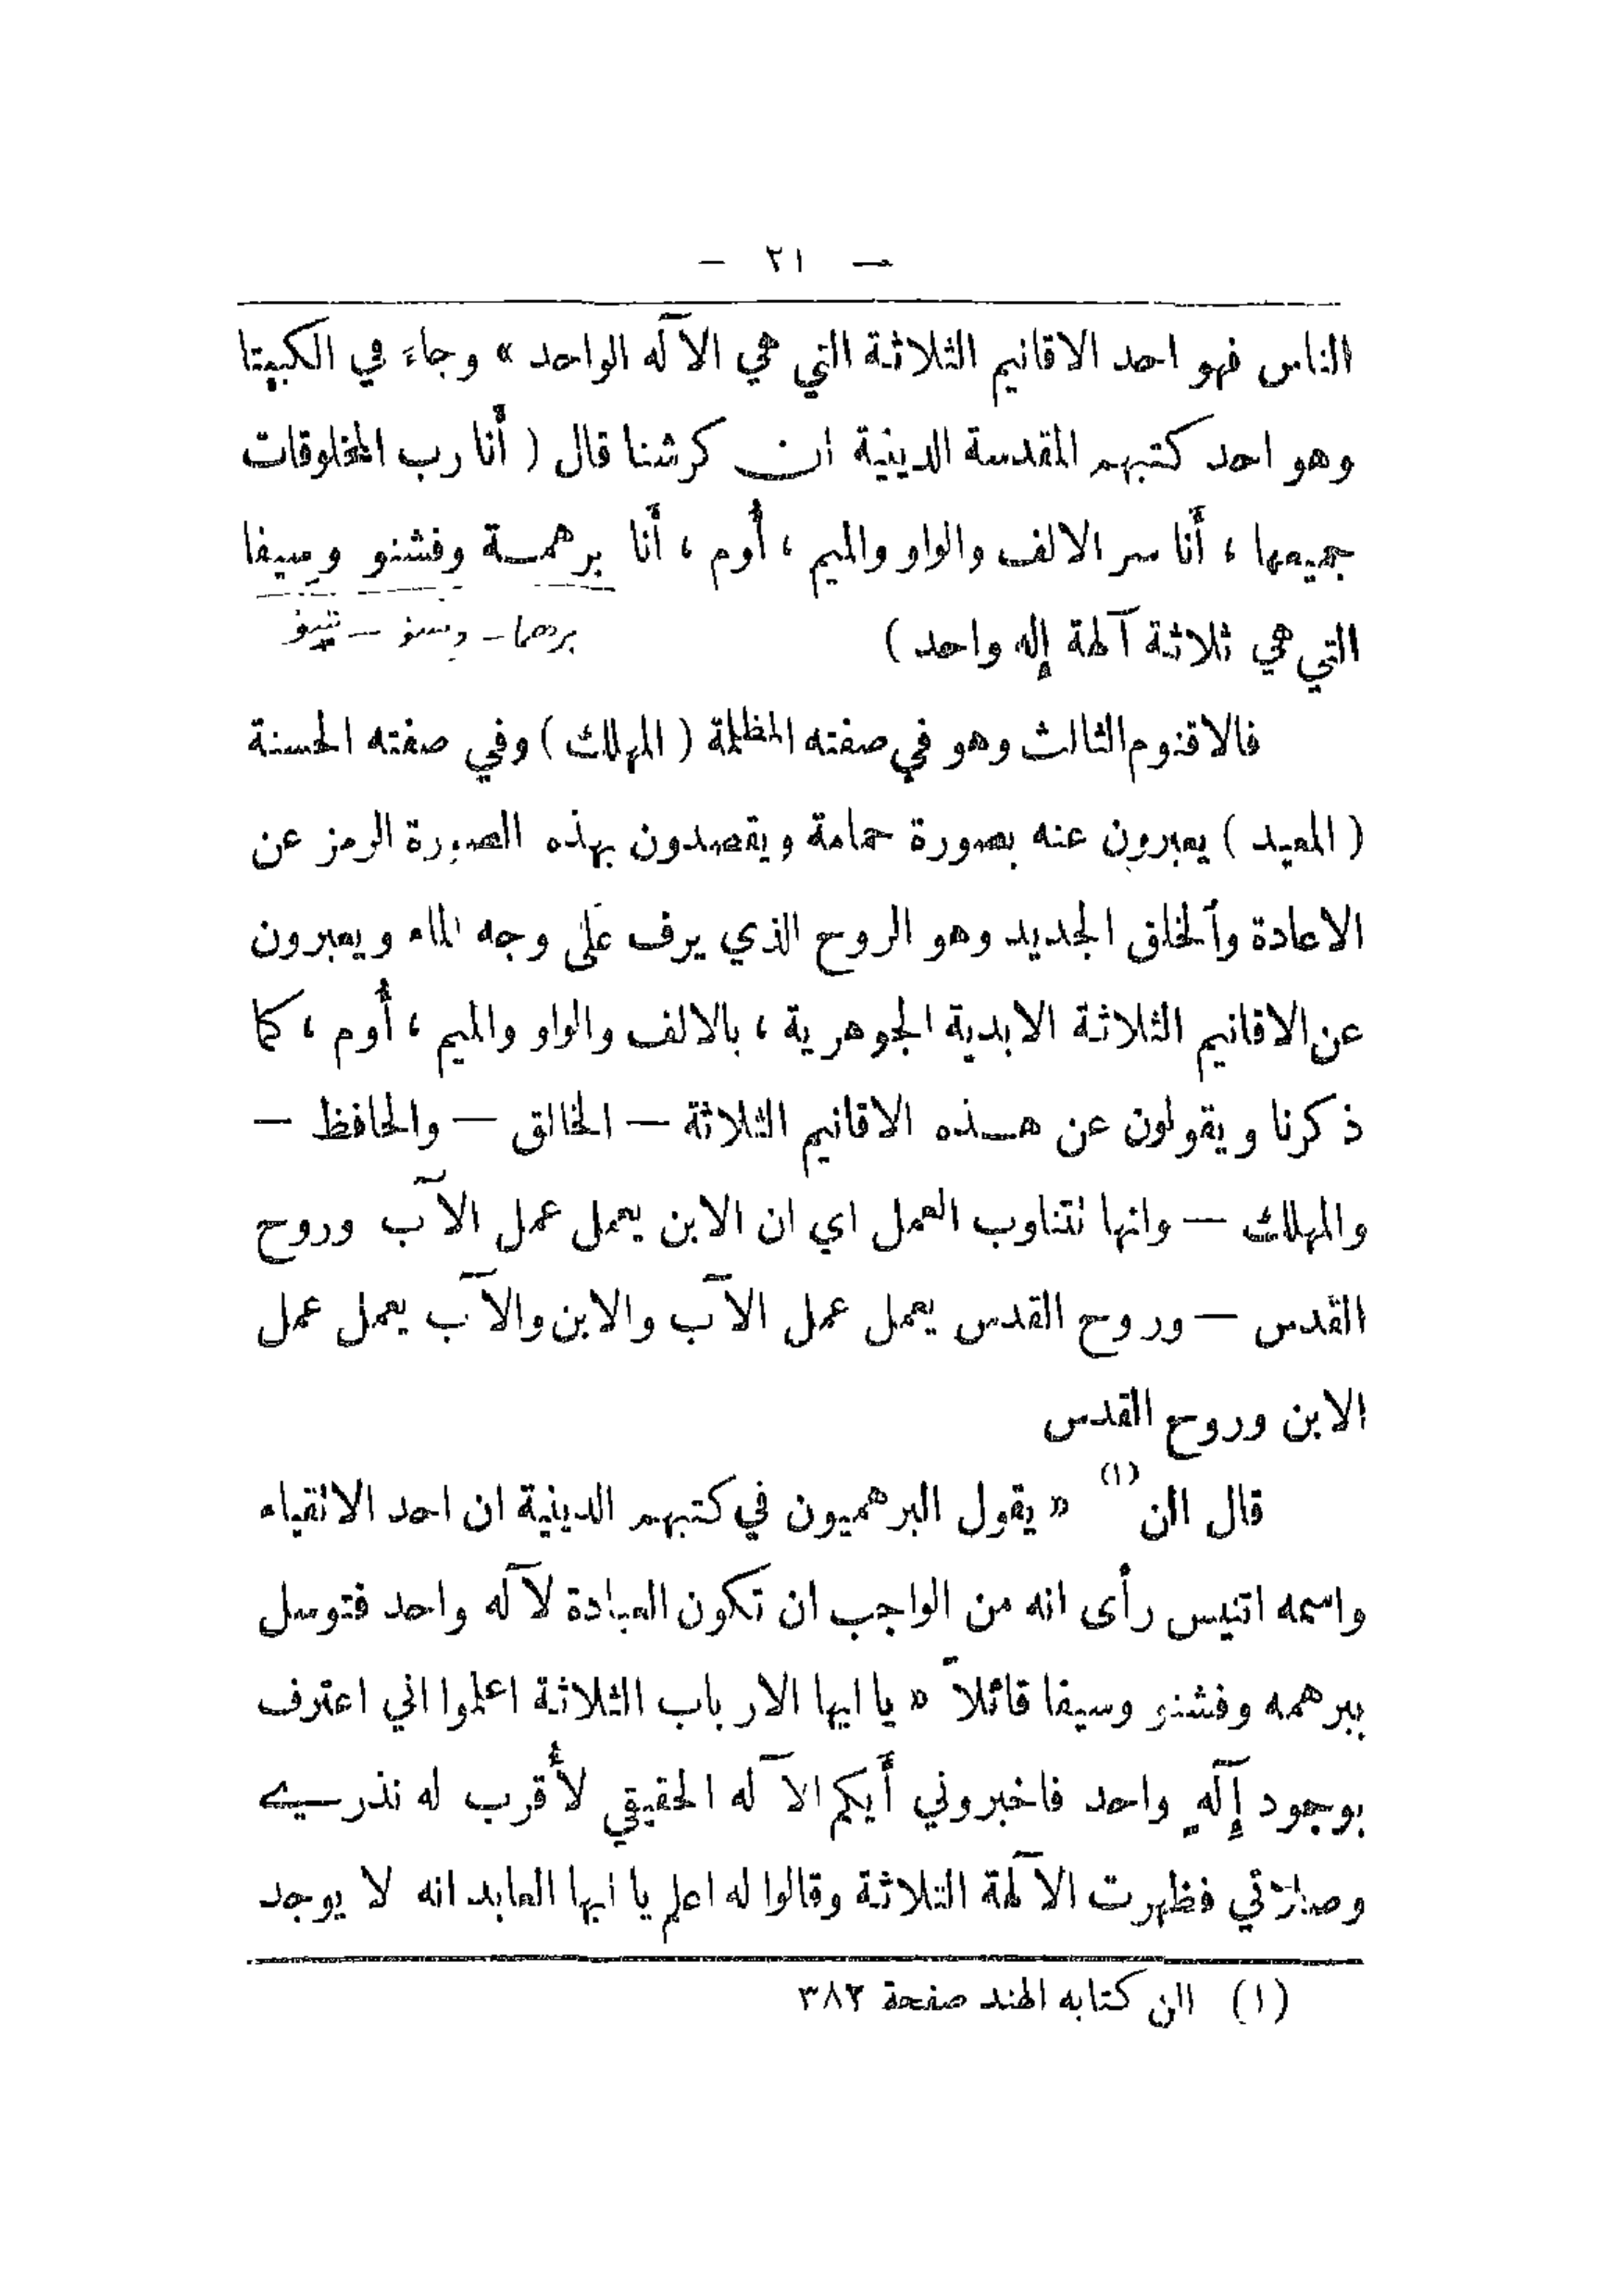 — ٢١ —
الناس فهو احد الاقانيم الثلاثة التي هي الآله الواحد » وجاءَ في الكيتا
وهو احد كتبهم المقدسة الدينية ان كرشنا قال ( أنا رب المخلوقات
جميعها ، أنا سر الالف والواو والميم ، أوم ، أنا برهمة وفشنو وسيفا
التي هي ثلاثة آلهة إله واحد )
برهما -
فالاقنوم الثالث وهو في صفته المظلمة ( المهلك ) وفي صفته الحسنة
( المعيد ) يعبرون عنه بصورة حمامة ويقصدون بهذه الصورة الرمز عن
الاعادة والخلق الجديد وهو الروح الذي يرف عَلى وجه الماء ويعبرون
عن الاقانيم الثلاثة الابدية الجوهرية ، بالالف والواو والميم ، أوم ، كما
ذكرنا ويقولون عن هذه الاقانيم الثلاثة — الخالق — والحافظ —
والمهلك — وانها نتناوب العمل اي ان الابن يعمل عمل الآب وروح
القدس — وروح القدس يعمل عمل الآب والابن والآب يعمل عمل
الابن وروح القدس
قال الن (١) « يقول البرهميون في كتبهم الدينية ان احد الاتقياء
واسمه اتنيس رأى انه من الواجب ان تكون العبادة لآله واحد فتوسل
ببرهمه وفشنو وسيفا قائلاً « يا ايها الارباب الثلاثة اعلموا اني اعترف
بوجود إلهٍ واحد فاخبروني أيكم الآله الحقيقي لأقرب له نذري
وصلاتي فظهرت الآلهة الثلاثة وقالوا له اعلم يا ايها العابد انه لا يوجد
(١) الن كتابه الهند صفحة ٣٨٢